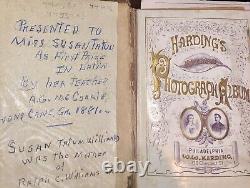 PRESENTED TO
MISS SUSAN TATUM
AS FIRST PRIZE
IN LATIN
BY HER TEACHER
A.G. MC CURRIE
GA. 1881
SUSAN TATUM WILLIAMS
WAS THE MOTHER
OF
RALPH C. WILLIAMS
HARDING'S
PHOTOGRAPH ALBUM
PHILADELPHIA
W.W. HARDING,